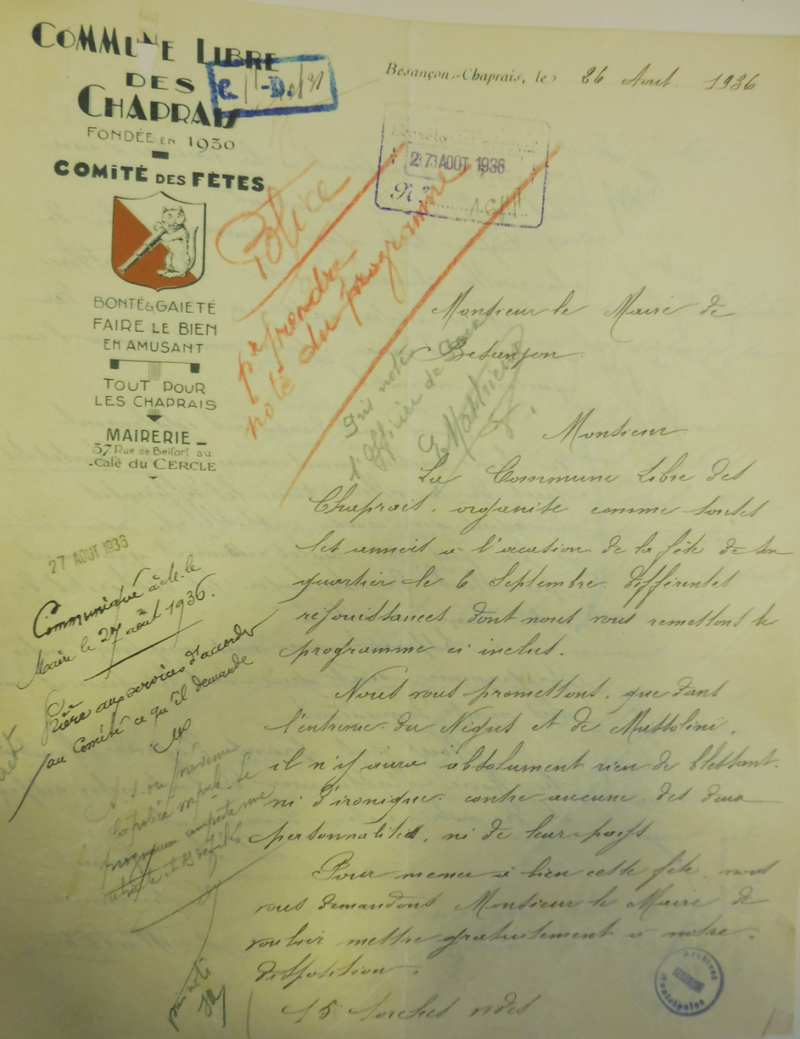 COMMUNE LIBRE
DES
CHAPRAIS
FONDÉE EN 1930
COMITÉ DES FÊTES
BONTÉ & GAIETÉ
FAIRE LE BIEN
EN AMUSANT
TOUT POUR
LES CHAPRAIS
MAIRERIE_
37 Rue de Belfort au
Café du CERCLE
Besançon-Chaprais, le 26 Aout 1936
AOUT 1936
N°
Police
pr prendre
note du programme
Pris note
l'Officier de
Monsieur le Maire de
Besançon.
Monsieur
La Commune Libre des
Chaprais. organise comme toutes
les années à l'occasion de la fête de son
quartier le 6 Septembre. différentes
réjouissances dont nous vous remettons le
programme ci inclus.
Nous vous promettons. que dans
l'entrevue du Négus et de Mussolini.
il n'y aura absolument rien de blessant.
ni d'ironique. contre aucune des deux
personnalités, ni de leur pays
Pour mener à bien cette fête. nous
vous demandons Monsieur le Maire de
vouloir mettre gratuitement à notre.
disposition.
15 torches vides
27 AOUT 1936
Communiqué à M. le
Maire le 27 août 1936.
Prière aux services d'accorder
au Comité ce qu'il demande
Archives
BESANÇON
Municipales